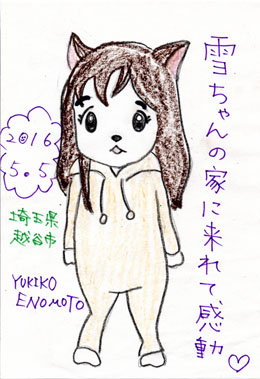 雪ちゃんの家に来れて、感動♡
2016
5.5
埼玉県
越谷市
YUKIKO
ENOMOTO